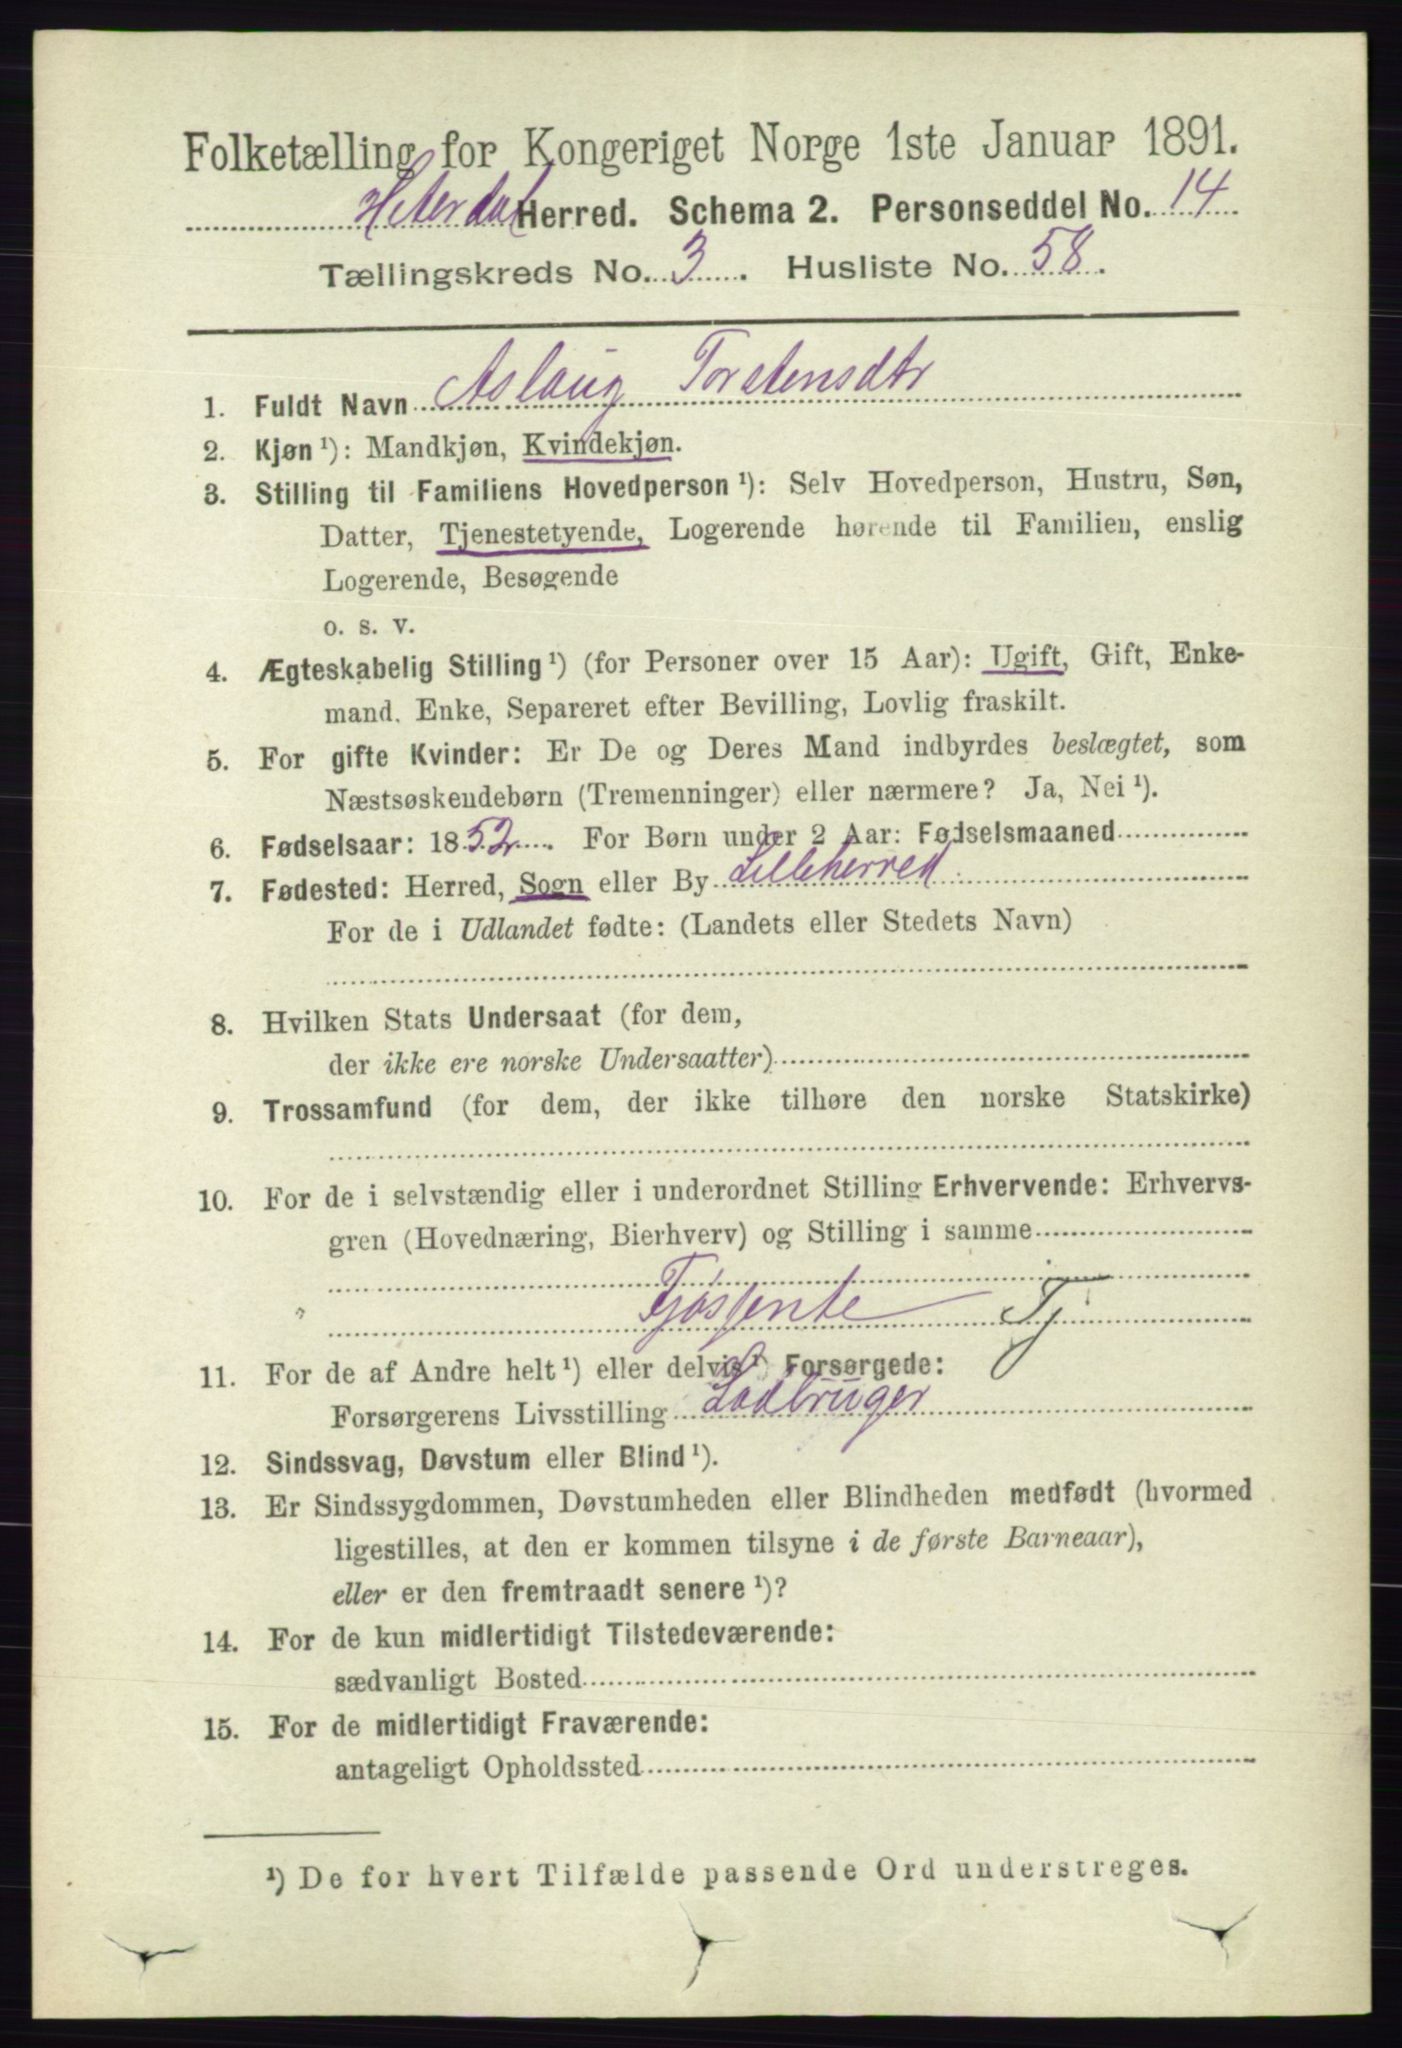 Folketælling for Kongeriget Norge 1ste Januar 1891.
Hiterdal Herred. Schema 2. Personseddel No. 14
Tællingskreds No. 3. Husliste No. 58.
1. Fuldt Navn Aslaug Torstensdtr
2. Kjøn ¹): Mandkjøn, Kvindekjøn.
3. Stilling til Familiens Hovedperson ¹): Selv Hovedperson, Hustru, Søn,
Datter, Tjenestetyende, Logerende hørende til Familien, enslig
Logerende, Besøgende
o. s. v.
4. Ægteskabelig Stilling ¹) (for Personer over 15 Aar): Ugift, Gift, Enke-
mand, Enke, Separeret efter Bevilling, Lovlig fraskilt.
5. For gifte Kvinder: Er De og Deres Mand indbyrdes beslægtet, som
Næstsøskendebørn (Tremenninger) eller nærmere? Ja, Nei ¹).
6. Fødselsaar: 1852. For Børn under 2 Aar: Fødselsmaaned
7. Fødested: Herred, Sogn eller By Lilleherred
For de i Udlandet fødte: (Landets eller Stedets Navn)
8. Hvilken Stats Undersaat (for dem,
der ikke ere norske Undersaatter)
9. Trossamfund (for dem, der ikke tilhøre den norske Statskirke)
10. For de i selvstændig eller i underordnet Stilling Erhvervende: Erhvervs-
gren (Hovednæring, Bierhverv) og Stilling i samme
Fjøsjente Tj
11. For de af Andre helt ¹) eller delvis ¹) Forsørgede:
Forsørgerens Livsstilling Ladbruger
12. Sindssvag, Døvstum eller Blind ¹).
13. Er Sindssygdommen, Døvstumheden eller Blindheden medfødt (hvormed
ligestilles, at den er kommen tilsyne i de første Barneaar),
eller er den fremtraadt senere ¹)?
14. For de kun midlertidigt Tilstedeværende:
sædvanligt Bosted
15. For de midlertidigt Fraværende:
antageligt Opholdssted
¹) De for hvert Tilfælde passende Ord understreges.